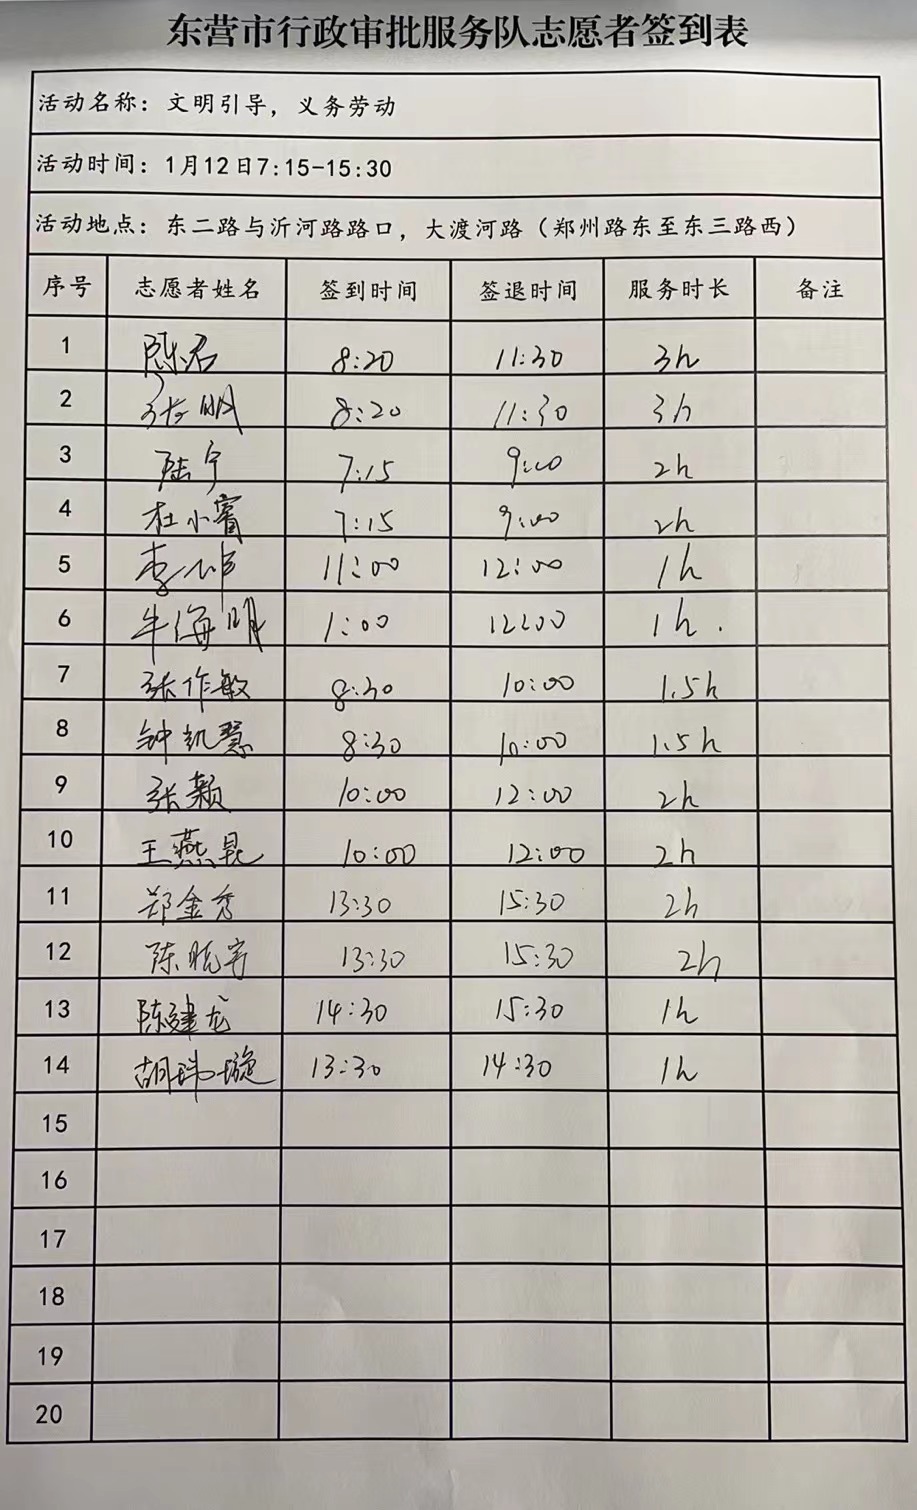 东营市行政审批服务队志愿者签到表
活动名称：文明引导，义务劳动
活动时间：1月12日7:15-15:30
活动地点：东二路与沂河路路口，大渡河路（郑州路东至东三路西）
序号 志愿者姓名 签到时间 签退时间 服务时长 备注
1 陈君 8:20 11:30 3h
2 张明 8:20 11:30 3h
3 陆宁 7:15 9:00 2h
4 杜小賓 7:15 9:00 2h
5 李 11:00 12:00 1h
6 牛海明 1:00 12:00 1h.
7 张作敏 8:30 10:00 1.5h
8 钟凯慧 8:30 10:00 1.5h
9 张颖 10:00 12:00 2h
10 王燕昆 10:00 12:00 2h
11 郑金秀 13:30 15:30 2h
12 陈晓宇 13:30 15:30 2h
13 陈建龙 14:30 15:30 1h
14 胡玮璇 13:30 14:30 1h
15
16
17
18
19
20